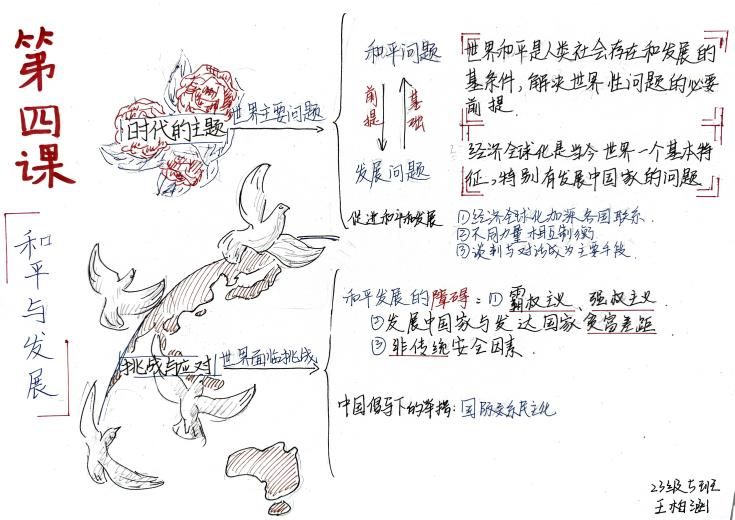 第四课
和平与发展
时代的主题
世界主要问题
和平问题
前提
基础
发展问题
世界和平是人类社会存在和发展的
基条件,解决世界性问题的必要
前提.
经济全球化是当今世界一个基本特
征,特别有发展中国家的问题
促进和平和发展
①经济全球化加深各国联系.
②不同力量相互制衡
③谈判与对话成为主要手段.
挑战与应对
世界面临挑战
和平发展的障碍:①霸权主义、强权主义.
②发展中国家与发达国家贫富差距
③非传统安全因素.
中国倡导下的举措:国际关系民主化
23级5班
王柏涵